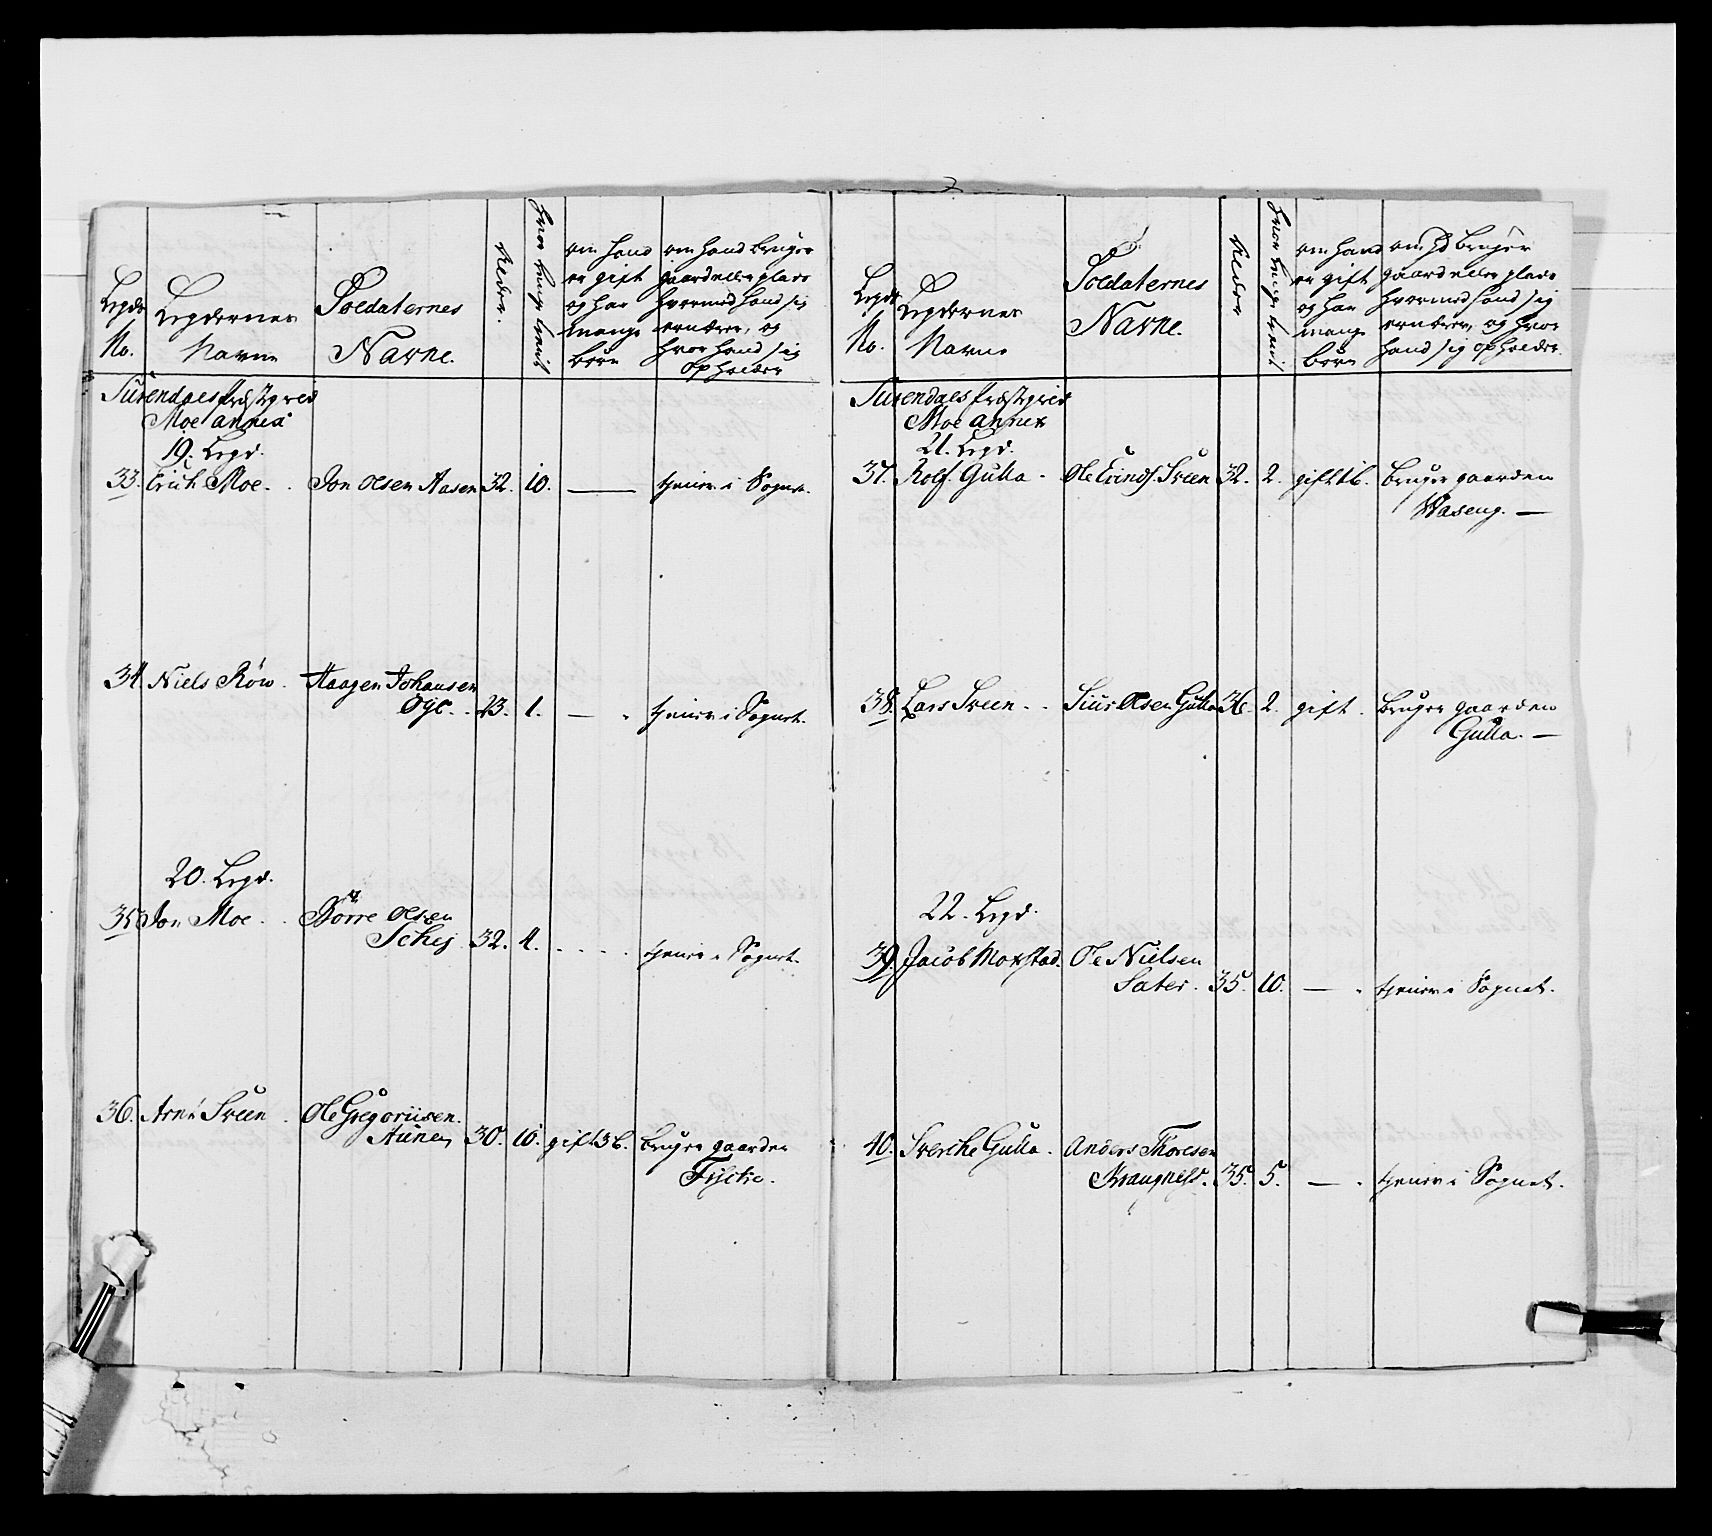 Legds
No.
Legdernes
Navne
Soldaternes
Navne.
Alder.
hvor lenge tient
om hand
er gift
og har
mange
børn
om hand bruger
gaard eller plads
hvormed hand sig
ernærer, og
hvor hand sig
opholder
Surendaels Præstegield
Moe annex
19. Legd.
33. Erich Moe. Jon Olsen Aasen 32. 10. — tiener i Sognet.
34. Niels Röw. Haagen Johansen
Øye. 23. 1. — tiener i Sognet.
20. Legd.
35. Jon Moe. Börre Olsen
Schej 32. 4. tiener i Sognet.
36. Arne Sveen Ole Gregoriusen
Aune 30. 10. gift 3 b. bruger gaarden
Fiske.
Legds
No.
Legdernes
Navne
Soldaternes
Navne.
Alder
hvor lenge tient
om hand
er gift
og har
mange
børn
om hd bruger
gaard eller plads
hvormed hand sig
ernærer, og hvor
hand sig opholder.
Surendaels Præstegield
Moe annex
21. Legd.
37. Rolf Gulla. Ole Evinds. Sveen 32. 2. gift 1 b. bruger gaarden
Waseng. —
38. Lars Sveen. Siur Olsen Gulla 36. 2. gift. bruger gaarden
Gulla. —
22. Legd.
39. Jacob Moxstad. Ole Nielsen
Sæter. 35. 10. — tiener i Sognet.
40. Sverche Gulla. Anders Thoresen
Krangnesd. 35. 5. — tiener i Sognet.